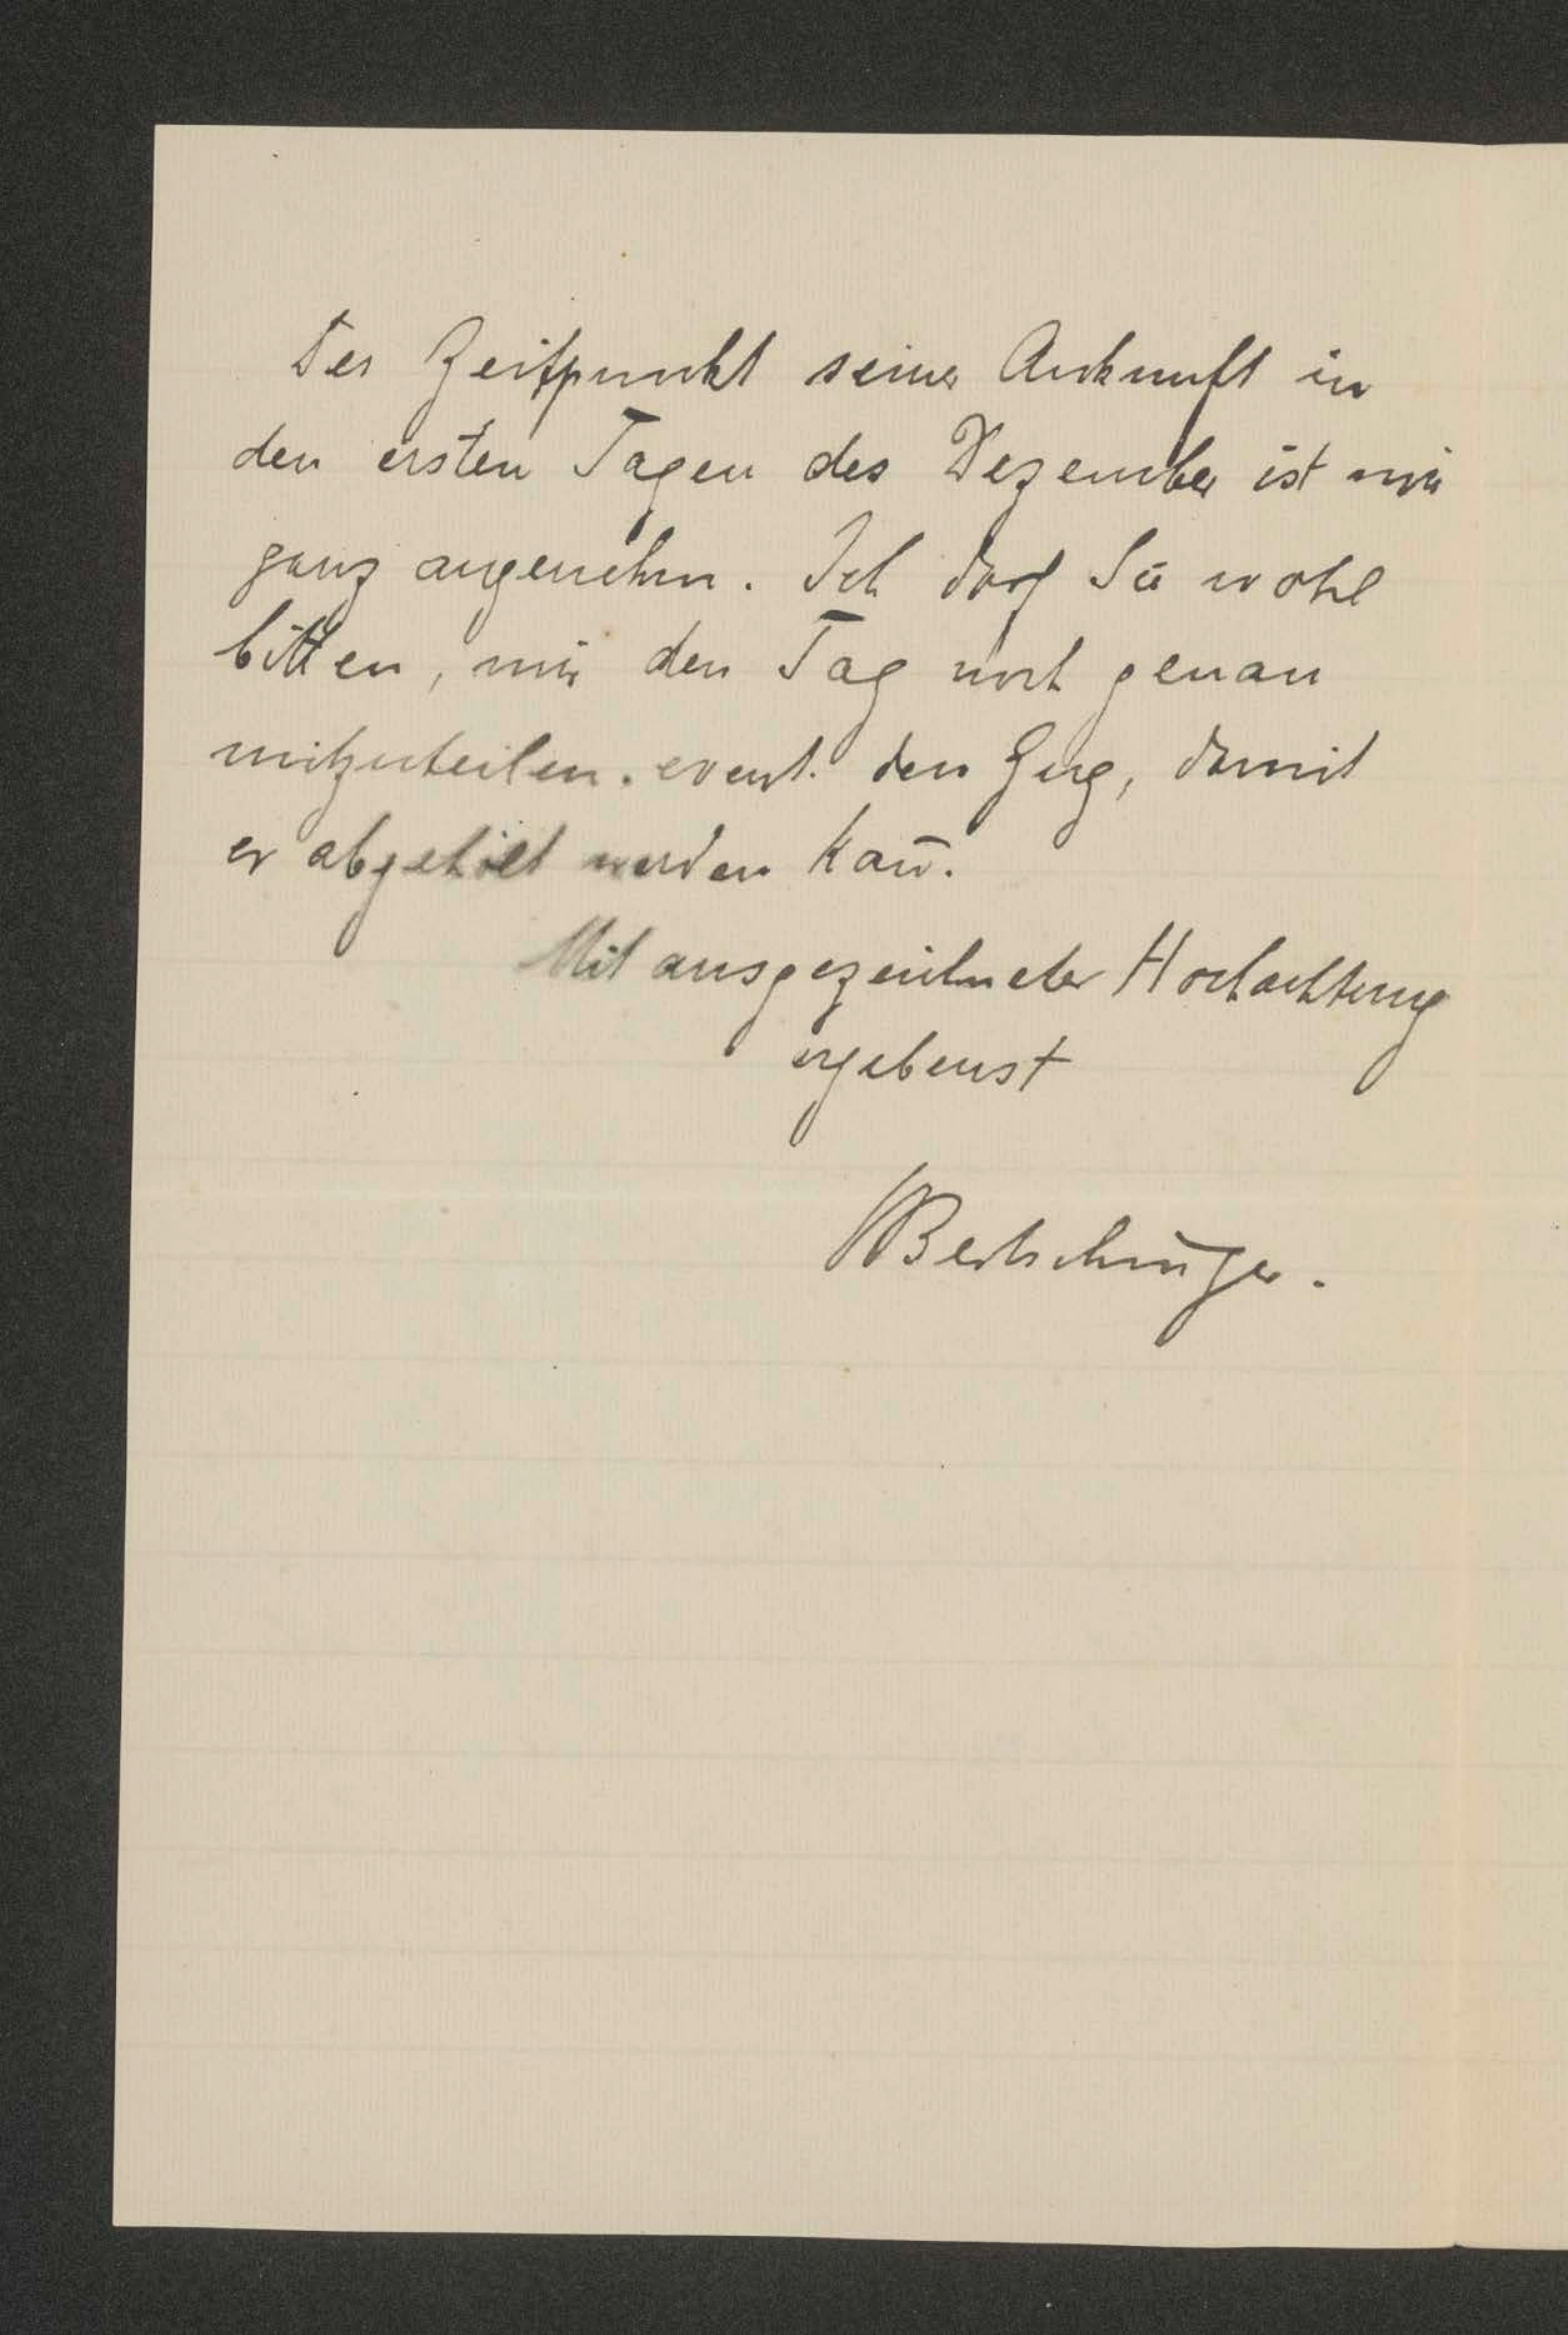 Der Zeitpunkt seiner Ankunft in
den ersten Tagen des Dezember ist mir
ganz angenehm. Ich darf Sie wohl
bitten, mir den Tag noch genau
mitzuteilen. event. den Zug, damit
er abgeholt werden kan̄.
Mit ausgezeichneter Hochachtung
ergebenst
Bertschinger.